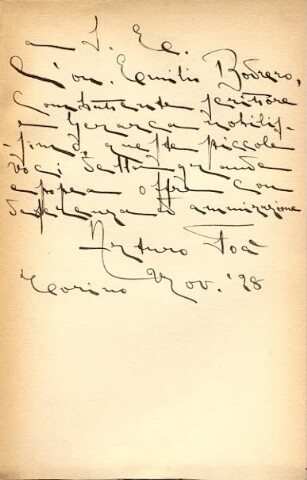 a S. Ec.
l'on. Emilio Bodrero,
Combattente scrittore
e gerarca nobilis-
simo, queste piccole
voci della grande
epopea offre con
deferenza ed ammirazione
Arturo Foà
Torino Nov. '28